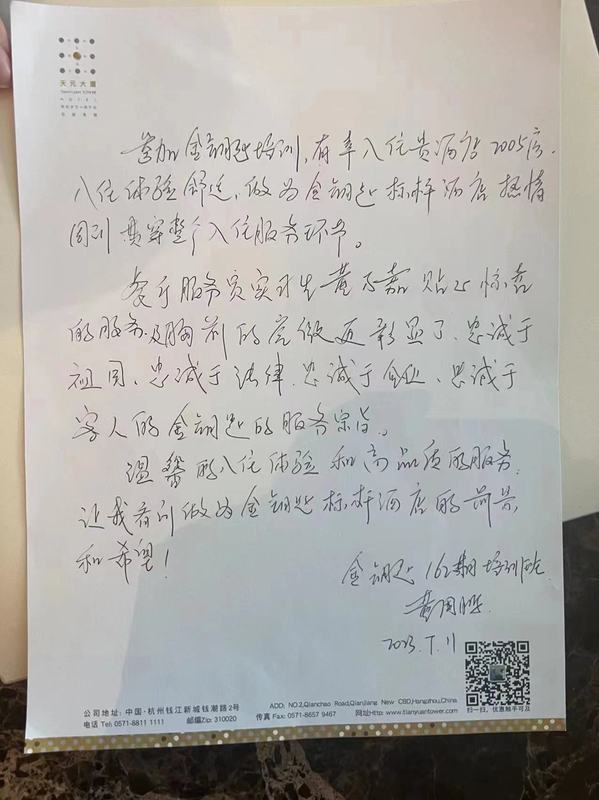 天元大厦
TIANYUAN TOWER
HOTEL
参加金钥匙培训，有幸入住贵酒店2005房.
入住体验舒适、做为金钥匙标杆酒店热情
周到贯穿整个入住服务环节。
餐厅服务员实习生黄不嘉贴心惊喜
的服务及胸前的党徽更彰显了、忠诚于
祖国、忠诚于法律、忠诚于企业、忠诚于
客人的金钥匙的服务宗旨。
温馨的入住体验和高品质的服务.
让我看到做为金钥匙标杆酒店的前景
和希望！
金钥匙162期培训班
黄国
2023.7.11
公司地址: 中国·杭州钱江新城钱潮路2号
ADD: NO.2,Qianchao Road,Qianjiang New CBD,Hangzhou,China
电话 Tel: 0571-8811 1111 邮编Zip: 310020 传真 Fax: 0571-8657 9467 网址Http: www.tianyuantower.com
扫一扫，优惠触手可及